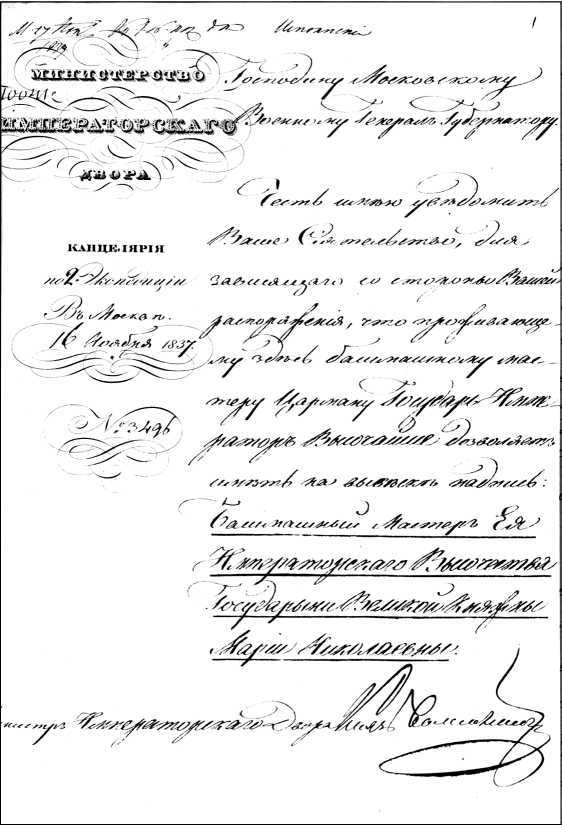 1
МИНИСТЕРСТВО
ИМПЕРАТОРСКАГО
ДВОРА
КАНЦЕЛЯРІЯ
по 2. Экспедиціи
Въ Москвѣ.
16 Ноября 1837.
№ 3496
Господину Московскому
Военному Генералъ Губернатору.
Честь имѣю увѣдомить
Ваше Сіятельство, для
зависящаго со стороны Вашей
распоряженія, что проживающе-
му здѣсь башмашному мас-
теру Царпаку Государь Импе-
раторъ Высочайше дозволяетъ
имѣть на вывѣскѣ надпись:
Башмашный Мастеръ Ея
Императорскаго Высочества
Государыни Великой Княжны
Маріи Николаевны.
Министръ Императорскаго Двора Князь Волконскій